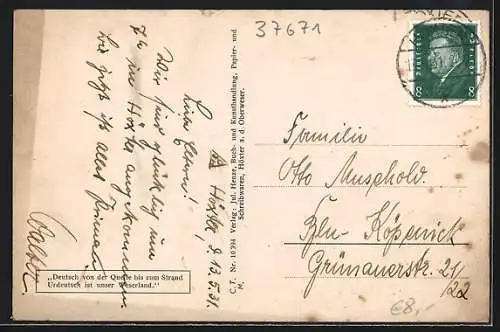 37671
Höxter, d. 13.5.31.
Liebe Eltern!
Wir sind glücklich um
7h in Höxter angekommen.
bis jetzt ist alles
Walter
„Deutsch von der Quelle bis zum Strand
Urdeutsch ist unser Weserland."
C. T. Nr. 10394 Verlag: Jul. Henze, Buch- und Kunsthandlung, Papier- und
Schreibwaren, Höxter a. d. Oberweser.
M.
DEUTSCHES REICH
8 8
Familie
Otto Muschold.
Bln-Köpenick
Grünauerstr. 21/22
€8,-